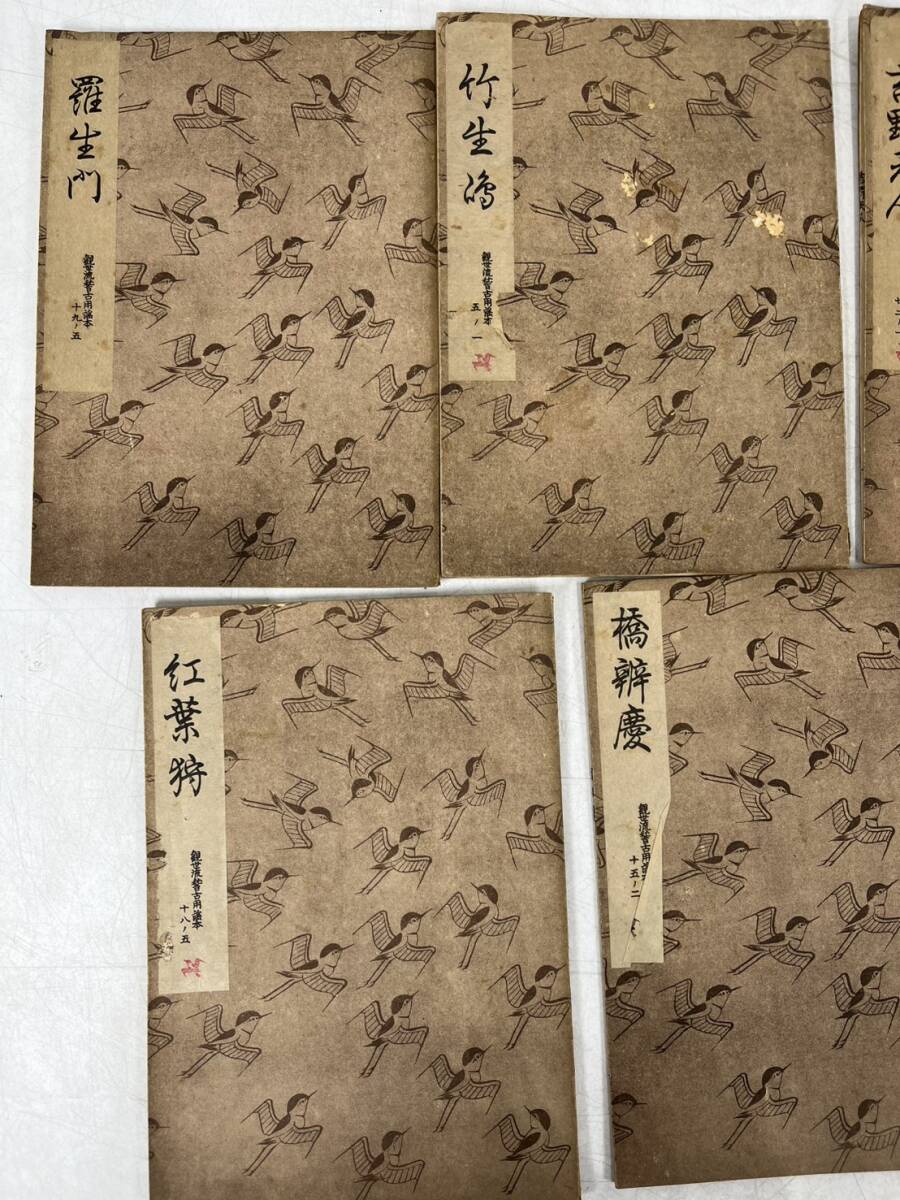 羅生門
観世流稽古用謡本
十九ノ五
竹生嶋
観世流稽古用謡本
五ノ一
吉野天人
紅葉狩
観世流稽古用謡本
十八ノ五
橋辨慶
観世流稽古用
十五ノ二